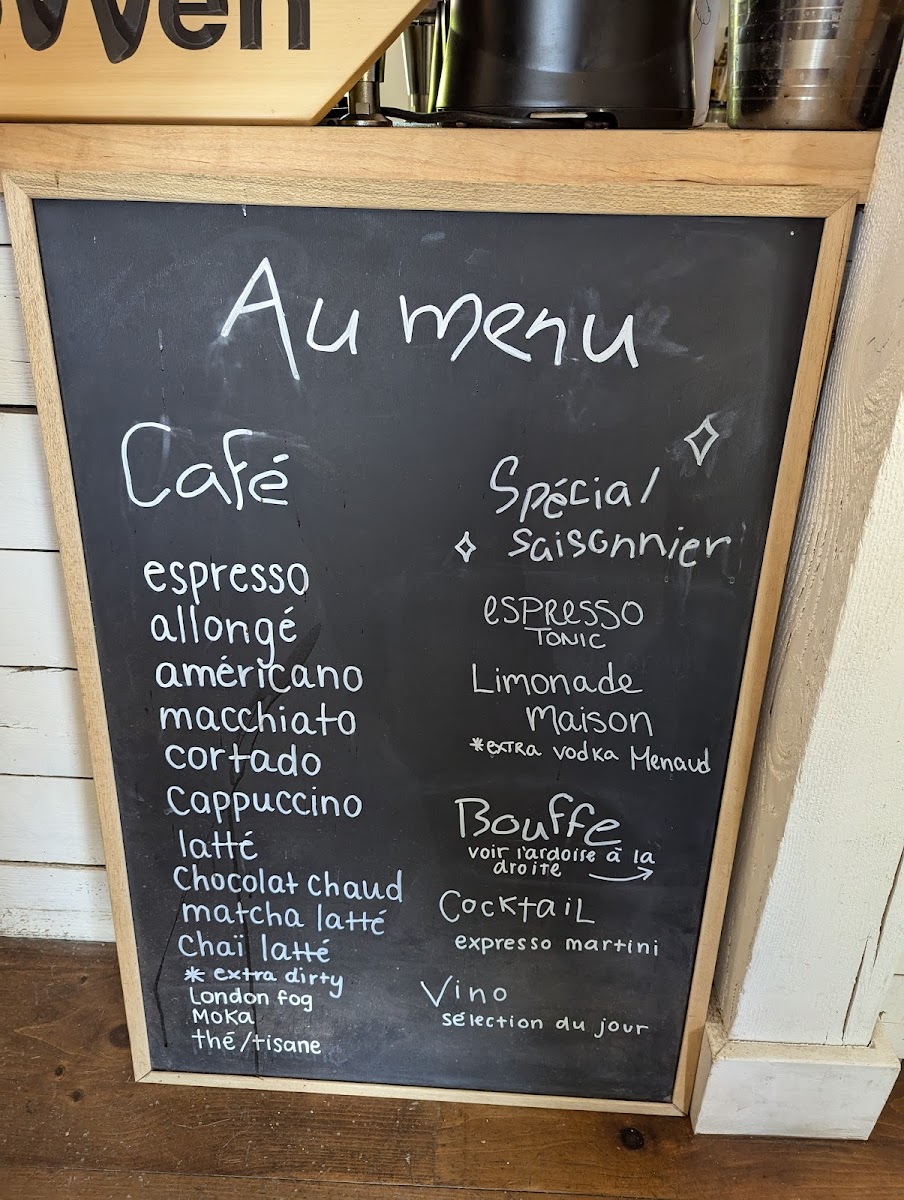 Au menu
Café
espresso
allongé
américano
macchiato
cortado
cappuccino
latté
chocolat chaud
matcha latté
chaï latté
* extra dirty
London fog
Moka
thé/tisane
Spécial
saisonnier
espresso
tonic
Limonade
maison
*extra vodka Menaud
Bouffe
voir l'ardoise à la
droite
Cocktail
expresso martini
Vino
sélection du jour